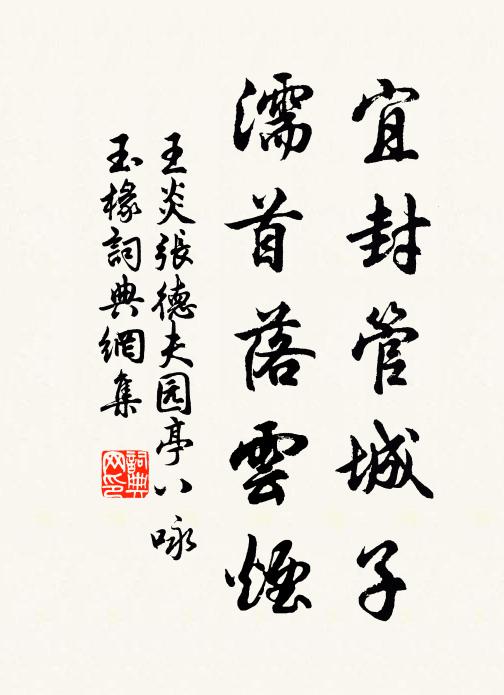 宜封管城子
濡首落雲煙
王炎張德夫园亭八咏
玉椽詞典網集
詞典网印